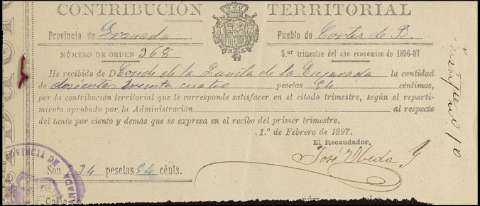 CONTRIBUCIÓN TERRITORIAL
Provincia de Granada Pueblo de Cortes de B.
NÚMERO DE ORDEN 268 3.er trimestre del año económico de 1896-97
He recibido de D. Conde de la Puebla de la la cantidad
de doscientas cuatro pesetas 84 céntimos,
por la contribución territorial que le corresponde satisfacer en el citado trimestre, según el reparti-
miento aprobado por la Administración al respecto
del tanto por ciento y demás que se expresa en el recibo del primer trimestre.
1.º de Febrero de 1897.
El Recaudador,
José Ubeda
Son 34 pesetas 84 cénts.
PROVINCIA DE